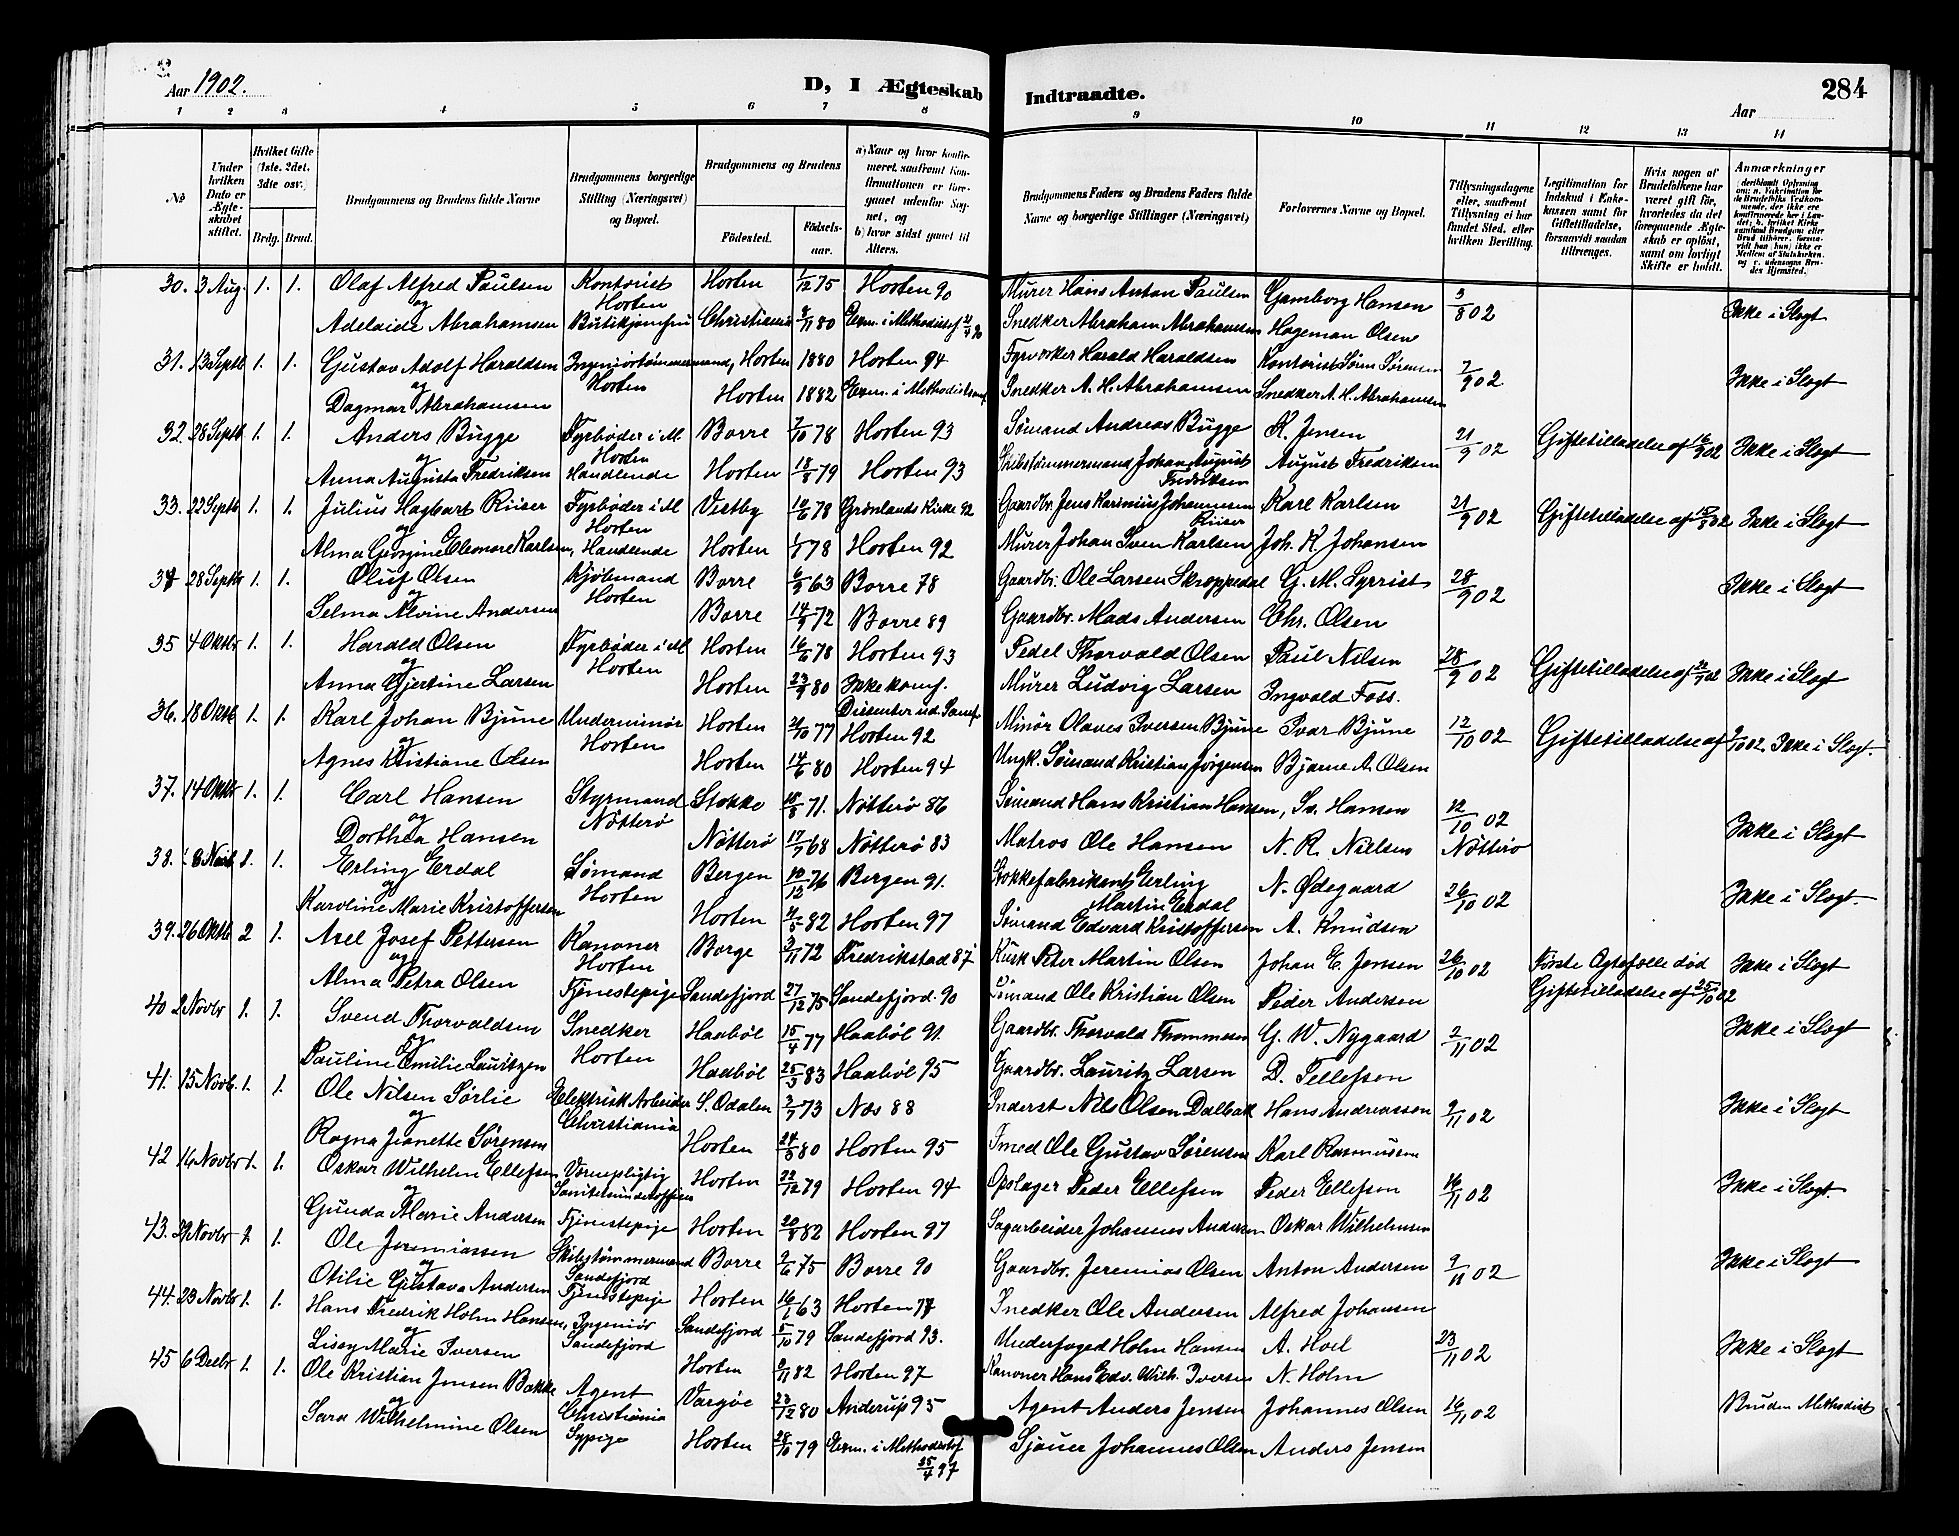 Aar 1902.
D, I Ægteskab Indtraadte.
284
Aar
1 2 3 4 5 6 7 8 9 10 11 12 13 14
No
Under hvilken Dato er Ægteskabet stiftet.
Hvilket Gifte (1ste, 2det, 3dte osv.)
Brdg. Brud.
Brudgommens og Brudens fulde Navne
Brudgommens borgerlige Stilling (Næringsvei) og Bopæl.
Brudgommens og Brudens
Fødested. Fødselsaar.
a) Naar og hvor konfirmeret, saafremt Konfirmationen er foregaaet udenfor Sognet, og
b) hvor sidst gaaet til Alters.
Brudgommens Faders og Brudens Faders fulde Navne og borgerlige Stillinger (Næringsvei)
Forlovernes Navne og Bopæl.
Tillysningsdagene eller, saafremt Tillysning ei har fundet Sted, efter hvilken Bevilling.
Legitimation for Indskud i Enkekassen samt for Giftetilladelse, forsaavidt saadan tiltrænges.
Hvis nogen af Brudefolkene har været gift før, hvorledes da det foregaaende Ægteskab er opløst, samt om lovligt Skifte er holdt.
Anmærkninger
30. 3 Aug. 1. 1. Olaf Alfred Paulsen Kontorist Horten Horten 1/12 75 Horten 90 Murer Hans Anton Paulsen Gamborg Hansen 3/8 02 Ikke i Slægt
og Adelaide Abrahamsen Butikjomfru Christiania 8/11 80 Exm. i Methodistsf Snedker Abraham Abrahamsen Hageman Olsen
31. 13 Septb 1. 1. Gustav Adolf Haraldsen Ingeniørtømmermand, Horten Horten 1880 Horten 94 Fyrvorker Harald Haraldsen Kontorist Sørен Sørensen 7/9 02 Ikke i Slægt
og Dagmar Abrahamsen Horten 1882 Exm. i Methodistsamf Snedker A. H. Abrahamsen Snedker A. H. Abrahamsen
32. 28 Septb 1. 1. Anders Bugge Fyrbøder i M. Horten Borre 7/10 78 Horten 93 Sømand Andreas Bugge K. Jensen 21/9 02 Giftetilladelse af 16/9 02 Ikke i Slægt
og Anna Augusta Fredriksen Handlende Horten 18/8 79 Horten 93 Skibstømmermand Johan August Fredriksen August Fredriksen
33. 22 Septb 1. 1. Julius Hagbart Riiser Fyrbøder i M Horten Vestby 10/6 78 Grønlands Kirke 92 Gaardbr. Jens Karenius Johannesen Riiser Karl Karlsen 21/9 02 Giftetilladelse af Ikke i Slægt
og Alma Georgine Eleonore Karlsen, Handlende Horten 1/1 78 Horten 92 Murer Johan Sven Karlsen Joh. K Johansen
34 28 Septb 1. 1. Oluf Olsen Kjøbmand Horten Borre 6/9 63 Borre 78 Gaardbr. Ole Larsen Skroppedal G. M. Syrrist 28/9 02 Ikke i Slægt
og Selma Alvine Andersen Borre 14/9 72 Borre 89 Gaardbr. Mads Andersen Chr. Olsen
35 4 Oktbr 1. 1. Harald Olsen Fyrbøder i M Horten Horten 16/6 78 Horten 93 Pedel Thorvald Olsen Paul Nilsen 28/9 02 Giftetilladelse af Ikke i Slægt
og Anna Gjertine Larsen Horten 23/9 80 Ikke konf. Dissenter ud. Samf. Murer Ludvig Larsen Ingvald Foss.
36. 18 Oktb 1. 1. Karl Johan Bjune Underminør Horten Horten 21/10 77 Horten 92 Minør Olaves Iversen Bjune Ivar Bjune 12/10 02 Giftetilladelse af 7/10 02. Ikke i Slægt.
og Agnes Kristiane Olsen Horten 14/6 80 Horten 94 Ungk. Sømand Kristian Jørgensen Bjarne A. Olsen
37. 14 Oktbr 1. 1. Carl Hansen Styrmand Nøtterø Stokke 18/8 71. Nøtterø 86 Sømand Hans Kristian Hansen, Sv. Hansen 12/10 02 Nøtterø Ikke i Slægt
og Dorthea Hansen Nøtterø 17/7 68 Nøtterø 83 Matros Ole Hansen N. R. Nielsen
38. 8 Novb 1. 1. Erling Erdal Sømand Horten Bergen 10/12 76 Bergen 91. Stokkefabrikant Erling Martin Erdal N. Ødegaard 26/10 02 Ikke i Slægt.
og Karoline Marie Kristoffersen Horten 4/5 82 Horten 97 Sømand Edvard Kristoffersen A. Knudsen
39. 26 Oktb 2 1. Axel Josef Pettersen Kanoner Horten Borge 3/11 72 Fredrikstad 87 Kusk Peter Martin Olsen Johan E. Jensen 26/10 02 Første Egtefælle død Giftetilladelse af 25/10 02 Ikke i Slægt
og Alma Petra Olsen Tjenestepige Sandefjord 27/12 75 Sandefjord. 90 Sømand Ole Kristian Olsen Peder Andersen
40 2 Novbr 1. 1. Svend Thorvaldsen Snedker Horten Haabøl 15/4 77 Haabøl 91. Gaardbr. Thorvald Thommesen G. W. Nygaard 2/11 02 Ikke i Slægt
og Pauline Emilie Lauritzen Haabøl 25/3 83 Haabøl 95 Gaardbr. Lauritz Larsen D. Tellefsen
41. 15 Novb. 1. 1. Ole Nilsen Sørlie Elektrisk Arbeider Christiania S. Odalen 3/1 73 Næs 88 Inderst Nils Olsen Dalbak Hans Andreassen 9/11 02 Ikke i Slægt
og Ragna Jeanette Sørensen Horten 24/5 80 Horten 95 Smed Ole Gustav Sørensen Karl Rasmussen
42 16 Novbr 1. 1. Oskar Wilhelm Ellefsen Vornepligtig Sanitetsunderoffiser Horten 22/12 79 Horten 94 Opslager Peder Ellefsen Peder Ellefsen 16/11 02 Ikke i Slægt.
og Gunda Marie Andersen Tjenestepige Horten 20/8 82 Horten 97 Sagarbeider Johannes Andersen Oskar Wilhelmsen
43. Novbr 1. Ole Jeremiassen Skibstømmermand Sandefjord Borre 9/6 75 Borre 90 Gaardbr. Jeremias Olsen Anton Andersen 9/11 02 Ikke i Slægt
og Otilie Gustava Andersen Tjenestepige Horten 16/1 63 Horten 77 Snedker Ole Andersen Alfred Johansen
44. 23 Novbr 1. 1. Hans Fredrik Holm Hansen, Ingeniør Sandefjord Sandefjord 5/10 79 Sandefjord 93. Underfoged Holm Hansen A. Hoel 23/11 02 Ikke i Slægt
og Lissy Marie Iversen Horten 9/11 82 Horten 97 Kanoner Hans Edv. Wilh. Iversen N. Holm
45 6 Decbr 1. 1. Ole Kristian Jensen Bakke Agent Christiania Vargøe 23/12 80 Anderup 95 Agent Anders Jensen Johannes Olsen 16/11 02 Bruden Methodist
og Sara Wilhelmine Olsen Sypige Horten 28/10 79 Exm. i Methodistsf 25/4 97 Sjauer Johannes Olsen Anders Jensen